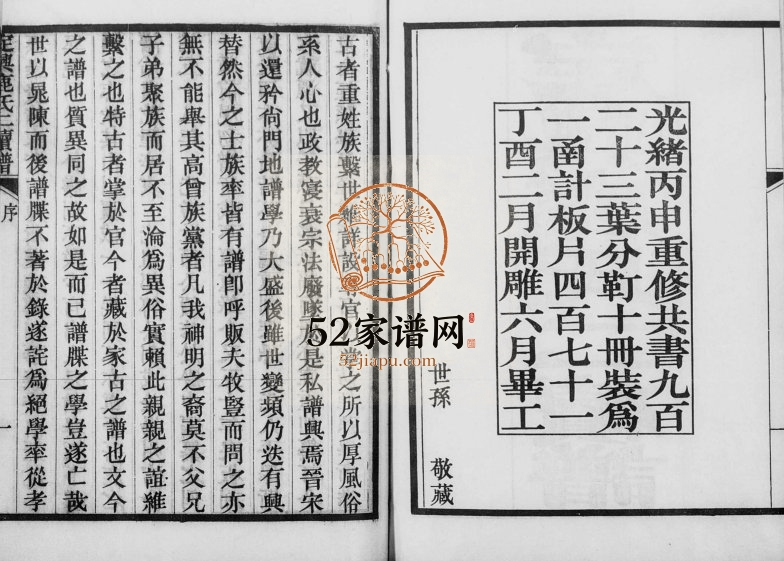 光緒丙申重修共書九百
二十三葉分釘十冊裝爲
一函計板片四百七十一
丁酉二月開雕六月畢工
世孫 敬藏
古者重姓族繫世維詳設官之所以厚風俗
系人心也政教寖衰宗法廢墜於是私譜興焉晉宋
以還矜尙門地譜學乃大盛後雖世變頻仍迭有興
替然今之士族率皆有譜卽呼販夫牧豎而問之亦
無不能舉其高曾族黨者凡我神明之裔莫不父兄
子弟聚族而居不至淪爲異俗實賴此親親之誼維
繫之也特古者掌於官今者藏於家古之譜也文今
之譜也質異同之故如是而已譜牒之學豈遂亡哉
世以晁陳而後譜牒不著於錄遂詫爲絕學率從孝
定興鹿氏二續譜
序
一
52家谱网
52jiapu.com